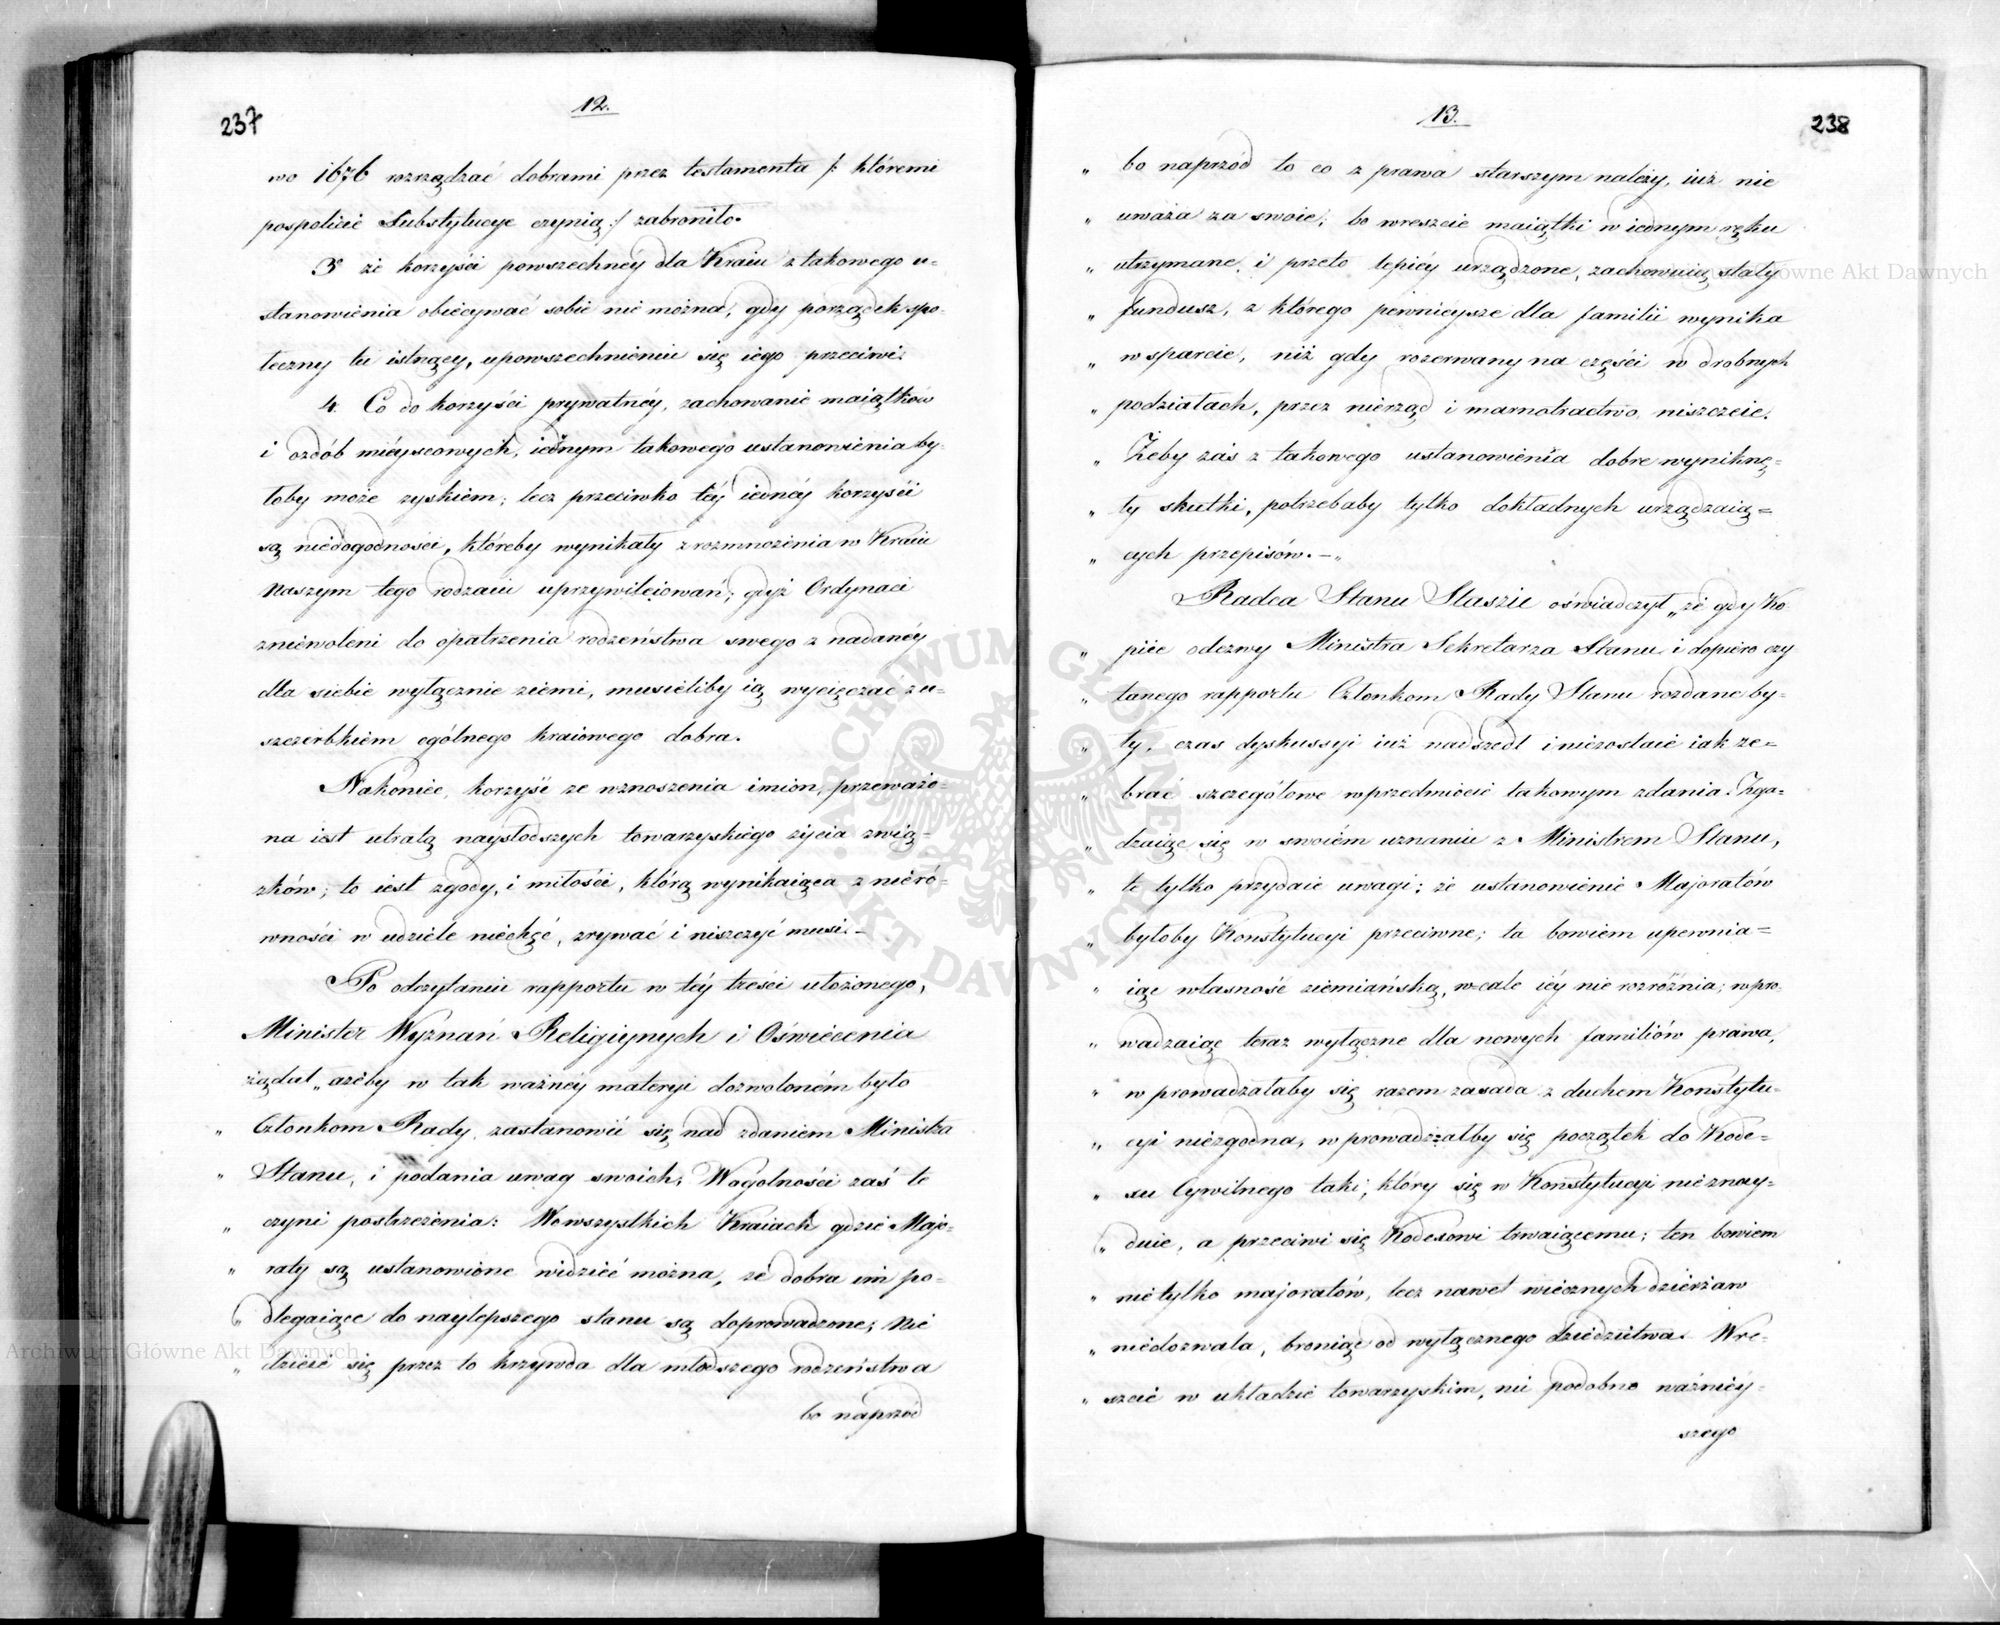 237
12.
wo 1676 rozrządzać dobrami przez testamenta /: któremi
pospolicie Substytucye czynią :/ zabroniło.
3º że korzyści powszechnéy dla Kraiu z takowego u-
stanowienia obiecywać sobie nie można, gdy porządek spo-
łeczny tu istnący, upowszechnieniu się iego przeciwi.
4. Co do korzyści prywatnéy, zachowanie maiątków
i ozdób mieyscowych, iednym takowego ustanowienia by-
łoby może zyskiem; lecz przeciwko téy iednéy korzyści
są niedogodności, któreby wynikały z rozmnożenia w Kraiu
Naszym tego rodzaiu uprzywileiowań; gdyż Ordynaci
zniewoleni do opatrzenia rodzeństwa swego z nadanéy
dla siebie wyłącznie ziemi, musieliby ią wycięczać z u-
szczerbkiem ogólnego kraiowego dobra.
Nakoniec, korzyść ze wznoszenia imion, przeważo-
na iest utratą naysłodszych towarzyskiego życia zwią-
zków; to iest zgody, i miłości, którą wynikaiąca z nieró-
wności w udziele niechęć, zrywać i niszczyć musi. –
Po odczytaniu rapportu w téy treści ułożonego,
Minister Wyznań Religiynych i Oświecenia
żądał „ ażeby w tak ważnéy materyi dozwoloném było
„ Członkom Rady, zastanowić się nad zdaniem Ministra
„ Stanu, i podania uwag swoich. Wogólności zaś te
„ czyni postrzeżenia: Wowszystkich Kraiach gdzie Majo-
„ raty są ustanowione widzieć można, że dobra im po-
„ dlegaiące do naylepszego stanu są doprowadzone; Nie
„ dzieie się przez to krzywda dla młodszego rodzeństwa
bo naprzód
13.
238
„ bo naprzód to co z prawa starszym należy, iuż nie
„ uważa za swoie; bo wreszcie maiątki w iednym ręku
„ utrzymane, i przeto lepiéy urządzone, zachowuią stały
„ fundusz, z którego pewnieysze dla familii wynika
„ wsparcie, niż gdy rozerwany na części w drobnych
„ podziałach, przez nierząd i marnotractwo niszczeie.
„ Żeby zaś z takowego ustanowienia dobre wyniknę=
„ ły skutki, potrzebaby tylko dokładnych urządzaią=
„ cych przepisów. – „
Radca Stanu Staszic oświadczył „ że gdy Ko
„ piie odezwy Ministra Sekretarza Stanu i dopiero czy
„ tanego rapportu Członkom Rady Stanu rozdane by-
„ ły, czas dyskussyi iuż nadszedł i niezostaie iak ze=
„ brać szczegółowe wprzedmiocie takowym zdania. Zga-
„ dzaiąc się w swoiém uznaniu z Ministrem Stanu,
„ te tylko przydaie uwagi; że ustanowienie Majoratów
„ byłoby Konstytucyi przeciwne; ta bowiem upewnia=
„ iąc własność ziemiańską, wcale iéy nie rozróżnia; wpro-
„ wadzaiąc teraz wyłączne dla nowych familiów prawa,
„ wprowadzałaby się razem zasada z duchem Konstytu-
„ cyi niezgodna, wprowadzałby się początek do Kode=
„ xu Cywilnego taki, który się w Konstytucyi nieznay-
„ duie, a przeciwi się Kodexowi trwaiącemu; ten bowiem
„ nietylko majoratów, lecz nawet wiecznych dzierżaw
„ niedozwala, broniąc od wyłącznego dziedzictwa. Wre-
„ szcie w układzie towarzyskim, nic podobno ważniéy-
szego
Archiwum Główne Akt Dawnych
Główne Akt Dawnych
ARCHIWUM GŁÓWNE AKT DAWNYCH